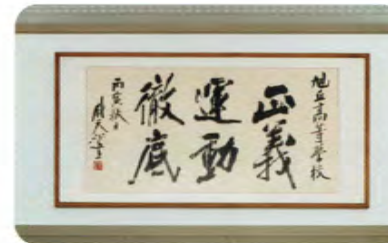 旭丘高等學校
正義
運動
徹底
丙寅秋日